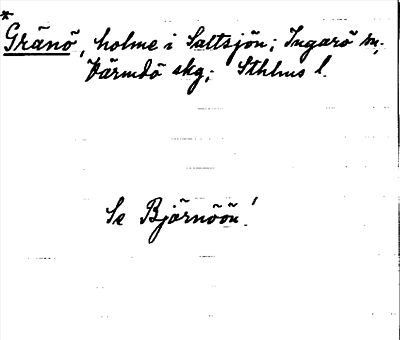 *
Gränö, holme i Saltsjön; Ingarö sn,
Värmdö skg; Sthlms l.
Se Björnöön!